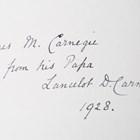 es M. Carnegie
from his Papa
Lancelot D. Carn
1928.